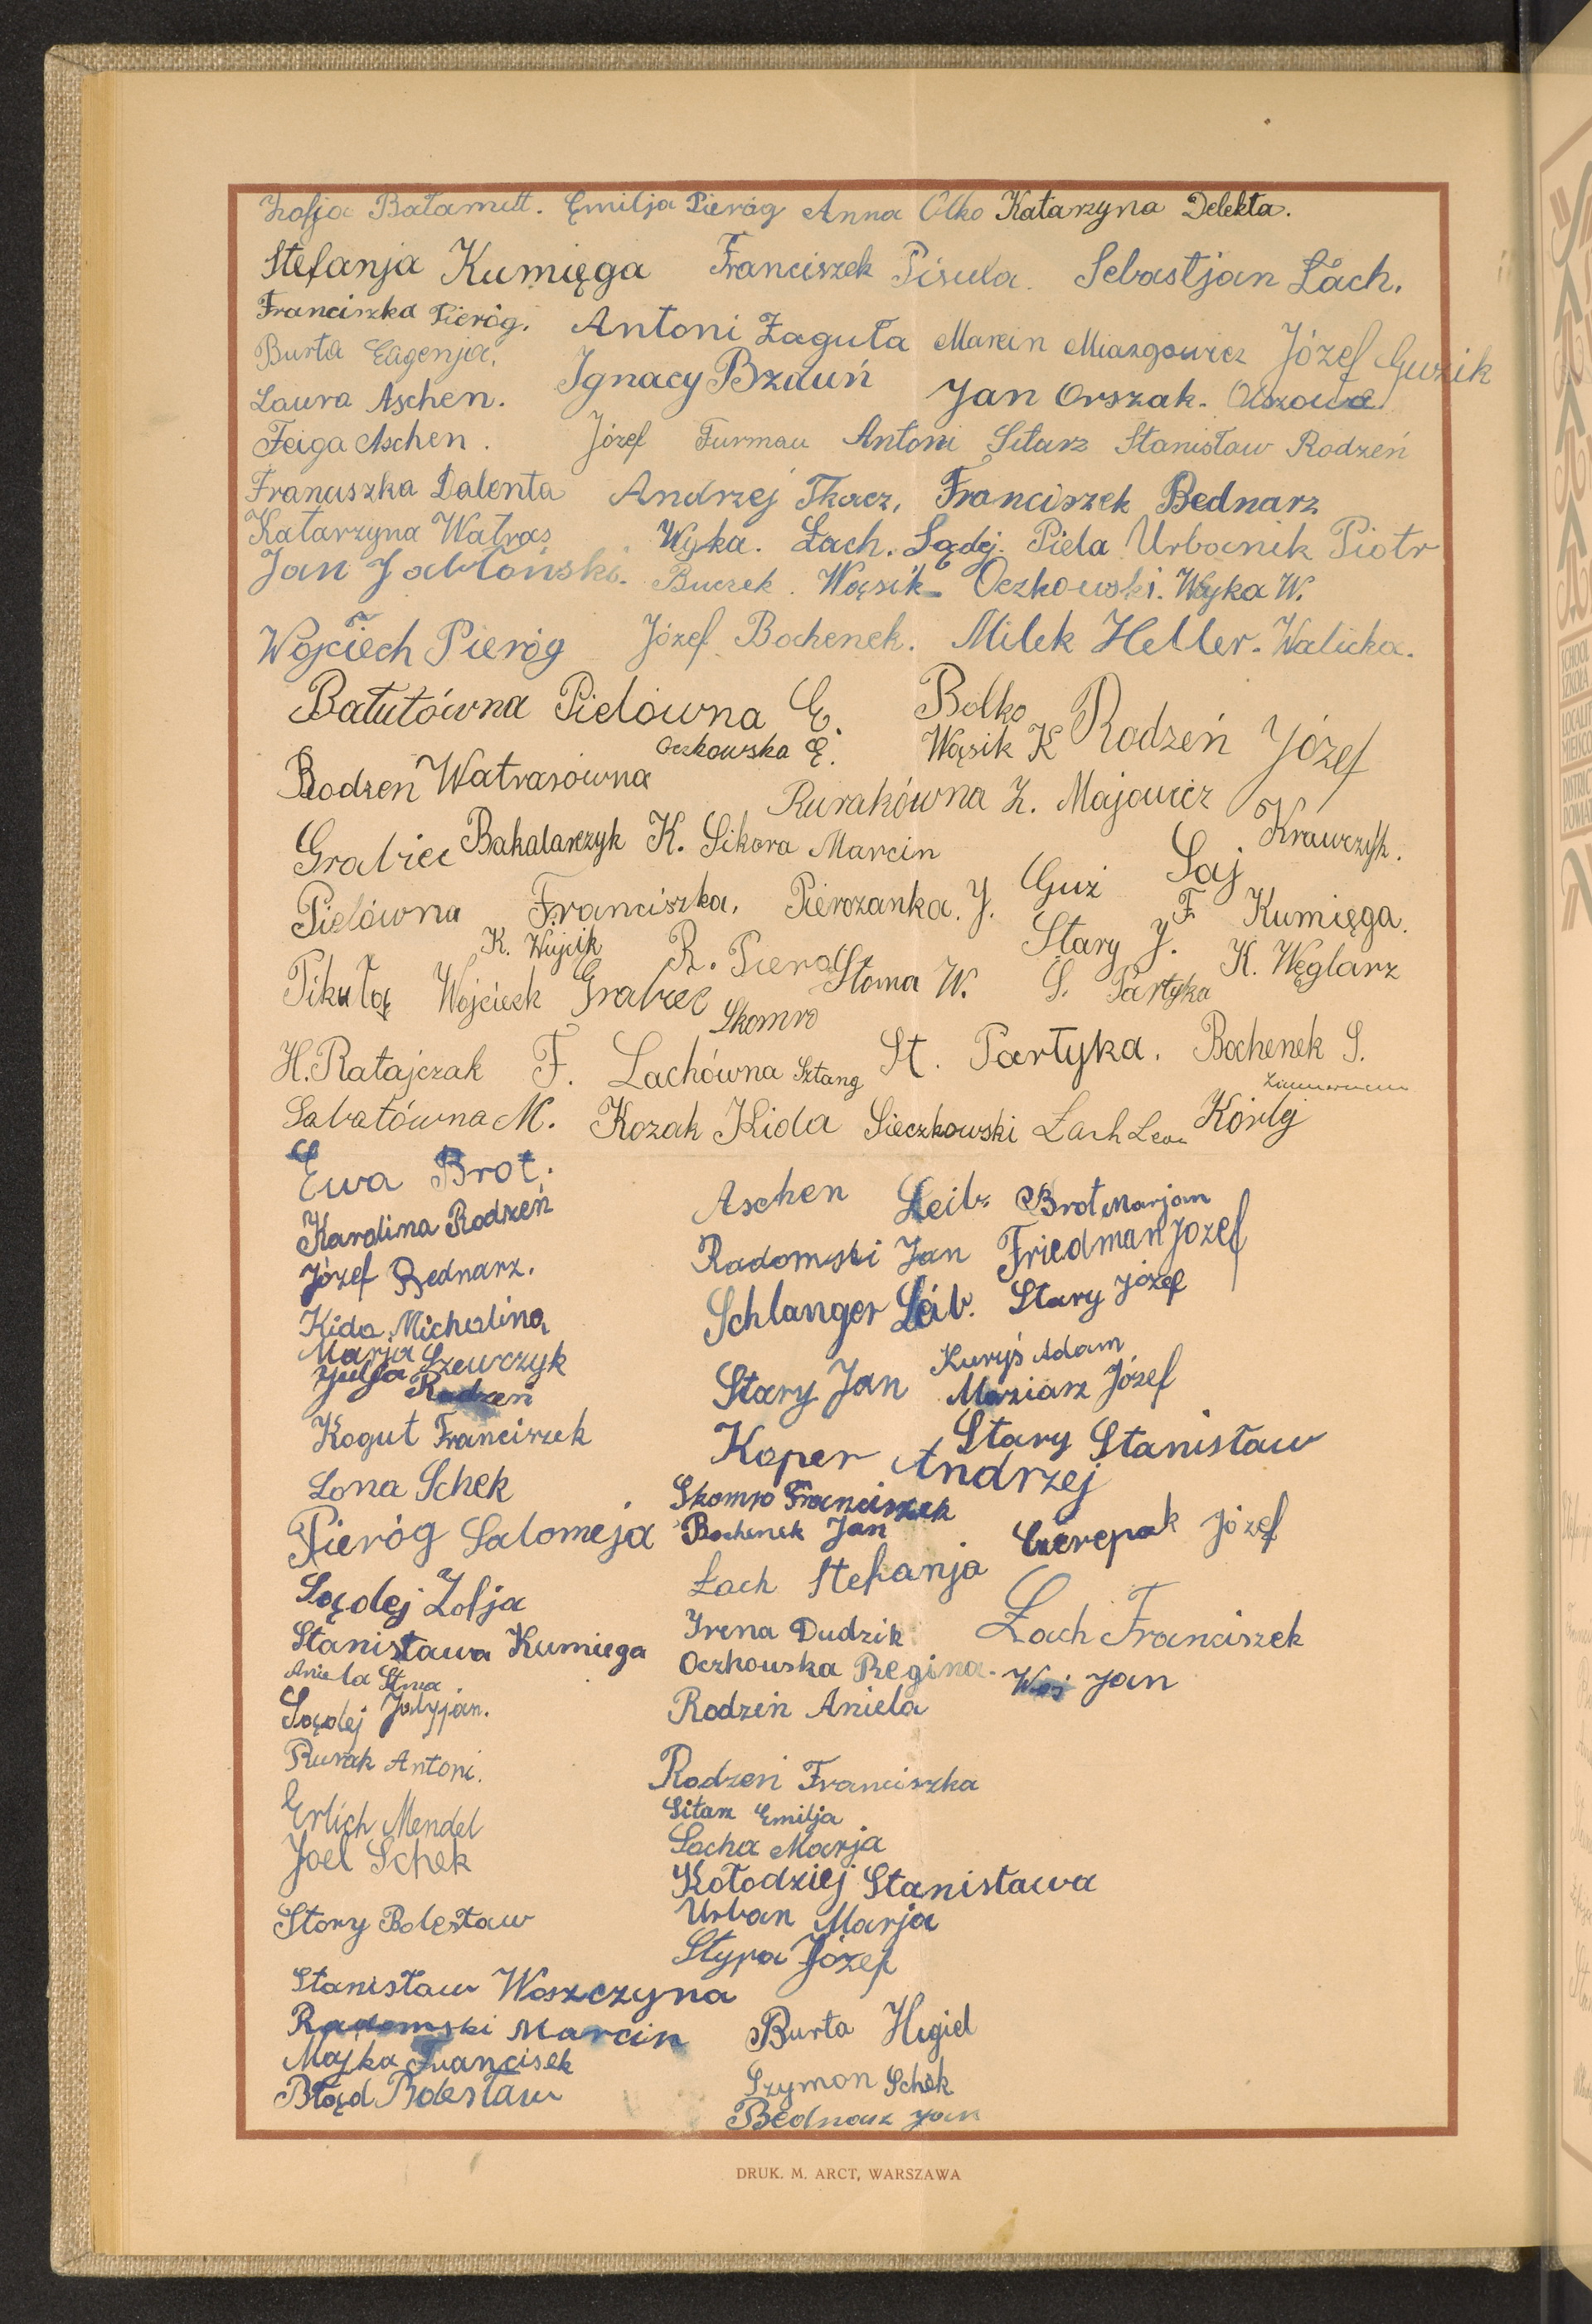 Zofja Bałamut. Emilja Pieróg Anna Olko Katarzyna Delekta.
Stefanja Kumięga Franciszek Pisula. Sebastjan Łach.
Franciszka Pieróg. Antoni Zaguła Marcin Miazgowicz Józef Guzik
Burta Eugenja. Ignacy Bzduń Jan Orszak.
Laura Aschen.
Feiga Aschen. Józef Furman Antoni Sitarz Stanisław Rodzeń
Franciszka Dalenta Andrzej Tkacz, Franciszek Bednarz
Katarzyna Watras Wyka. Łach. Sądej. Piela Urbanik Piotr
Jan Jabłoński. Buczek. Wąsik Oczkowski. Wyka W.
Wojciech Pieróg Józef Bochenek. Milek Heller. Walicka.
Batutówna Pielówna E. Bolko
Oczkowska E. Wąsik K Rodzeń Józef
Rodzeń Watrasówna
Rurakówna Z. Majowicz
Grabiec Bakalarczyk K. Sikora Marcin Saj Krawczyk.
Pielówna Franciszka. Pierozanka. J. Guź F. Kumięga.
K. Wójcik R. Pieróg Stary J. K. Węglarz
Pikuła Wojciech Grabiec Słoma W. S. Partyka
Skomro
H. Ratajczak F. Lachówna Sztang St. Partyka. Bochenek S.
Sabatówna M. Kozak Kida Sieczkowski Lach Leon
Ewa Brot.
Karolina Rodzeń
Józef Bednarz.
Kida Michalina
Marja Szewczyk
Julja Rodzeń
Kogut Franciszek
Lona Schek
Pieróg Salomeja
Sądej Zofja
Stanisława Kumięga
Aniela
Sądej
Rurak Antoni.
Erlich Mendel
Joel Schek
Story Bolesław
Stanisław Woszczyna
Radomski Marcin
Majka Francisek
Błąd Bolesław
Aschen Leib Brot Marjam
Radomski Jan Friedman Jozef
Schlanger Láb. Stary Józef
Stary Jan Kuryś Adam
Maziarz Józef
Stary Stanisław
Koper Andrzej
Skomro Franciszek
Bochenek Jan Czerepak Józef
Łach Stefanja
Irena Dudzik Łach Franciszek
Oczkowska Regina. Woś Jan
Rodzeń Aniela
Rodzeń Franciszka
Sitarz Emilja
Socha Marja
Kołodziej Stanisława
Urban Marja
Stypa Józef
Burta Higiel
Szymon Schek
Bednarz Jan
DRUK. M. ARCT, WARSZAWA